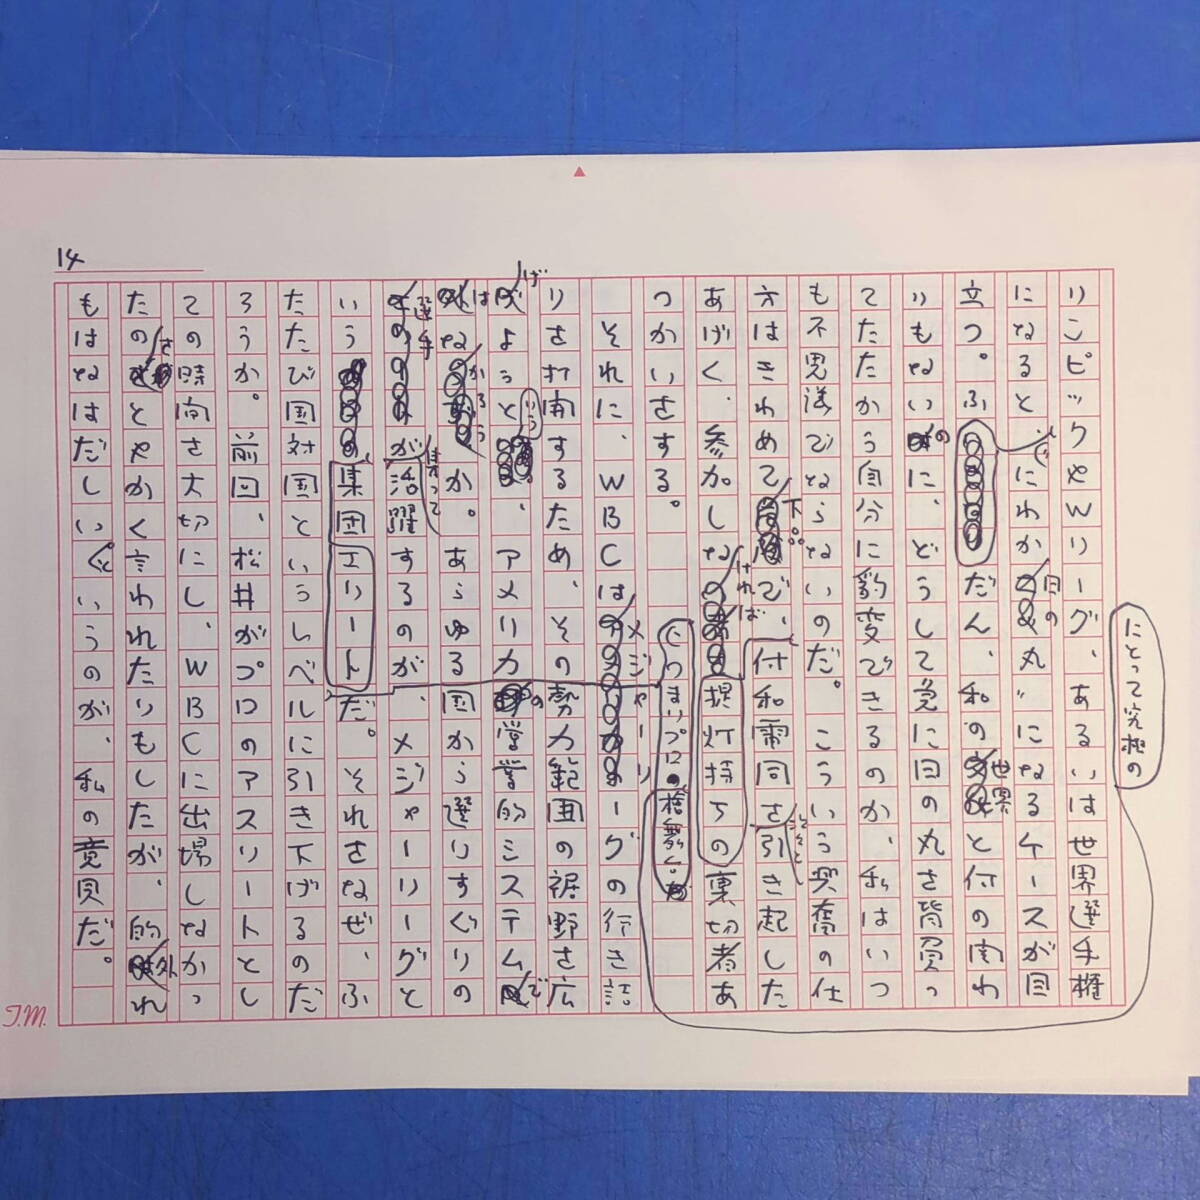 14
にとって究極の
リンピックやWリーグ、あるいは世界選手権
になると、にわか日の丸〃になるケースが目
立つ。ふだん、和の世界と何の関わ
りもないのに、どうして急に日の丸を背負っ
てたたかう自分に豹変できるのか、私はいつ
も不思議でならないのだ。こういう興奮の仕
方はきわめて下品で、付和雷同を引き起こした
あげく、参加しなければ提灯持ちの裏切者あ
つかいをする。
それに、WBCはメジャーリーグの行き詰
りを打開するため、その勢力範囲の裾野を広
げようという、アメリカの営業的システム
はなかろうか。あらゆる国から選りすぐりの
選手が活躍するのが、メジャーリーグと
いう集団エリートだ。それをなぜ、ふ
たたび国対国というレベルに引き下げるのだ
ろうか。前回、松井がプロのアスリートとし
ての時間を大切にし、WBCに出場しなかっ
たのをとやかく言われたりもしたが、的外れ
もはなはだしいというのが、私の意見だ。
つまりプロ
檜舞台
T.M.